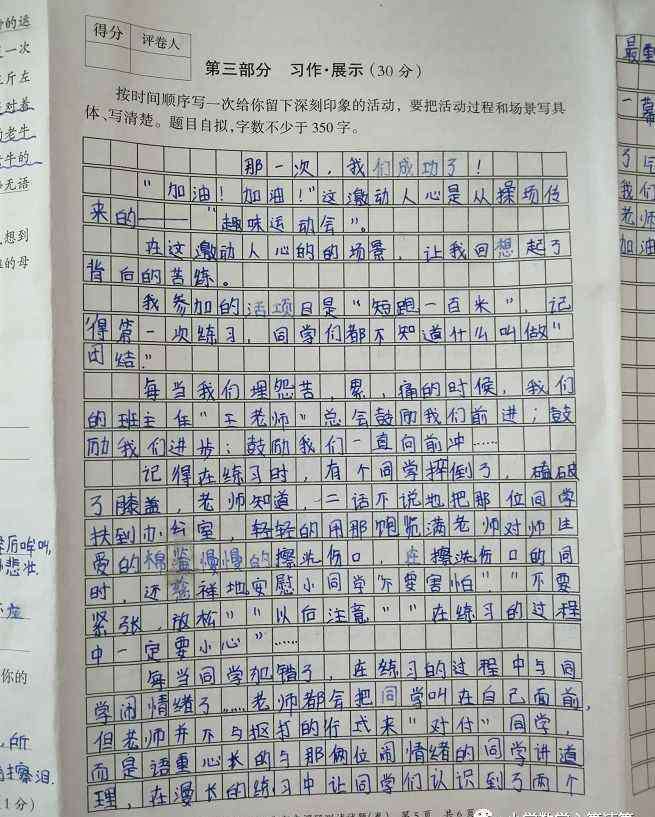 得分
评卷人
第三部分 习作·展示(30分)
按时间顺序写一次给你留下深刻印象的活动,要把活动过程和场景写具
体、写清楚。题目自拟,字数不少于350字。
那一次,我们成功了!
“加油!加油!”这激动人心是从操场传
来的——“趣味运动会”。
在这激动人心的的场景,让我回想起了
背后的苦练。
我参加的活项目是“短跑一百米”,记
得第一次练习,同学们都不知道什么叫做“
团结”
每当我们埋怨苦,累,痛的时候,我们
的班主任“王老师”总会鼓励我们前进;鼓
励我们进步;鼓励我们一直向前冲……
记得在练习时,有个同学摔倒了,磕破
了膝盖,老师知道,二话不说地把那位同学
扶到办公室,轻轻的用那饱览满老师对师生
爱的棉签慢慢的擦洗伤口,在擦洗伤口的同
时,还 地安慰小同学“不要害怕”“不要
紧张,放松”“以后注意”“在练习的过程
中一定要小心”……
每当同学犯错了,在练习的过程中与同
学闹情绪了……老师都会把同学叫在自己面前,
但老师并不与抠打的行式来“对付”同学,
而是语重心长的与那俩位闹情绪的同学讲道
理,在漫长的练习中让同学们认识到了两个
第5页 共6页
小学数学
的运
一次
斤左
对着
老牛
牛的
无语
想到
的母
悲壮
你的
所
擦泪
1分)
最
一幕
了
我们
老师
加油